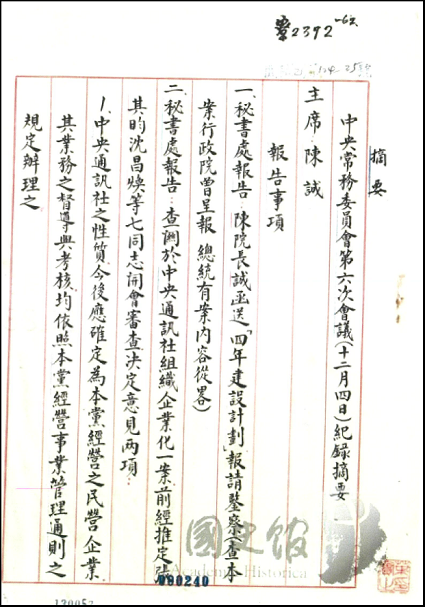 摘要
中央常務委員會第六次會議(十二月四日)紀錄摘要
主席:陳誠
報告事項
一、秘書處報告:陳院長誠函送「四年建設計劃」報請鑒察(查本
案行政院曾呈報 總統有案內容從畧)
二、秘書處報告:查關於中央通訊社組織企業化一案前經推定張
其昀沈昌煥等七同志開會審查決定意見兩項:
1.中央通訊社之性質今後應確定為本黨經營之民營企業
其業務之督導與考核,均依照本黨經營事業管理通則之
規定辦理之
2392
國史館
Academia Historica
090240